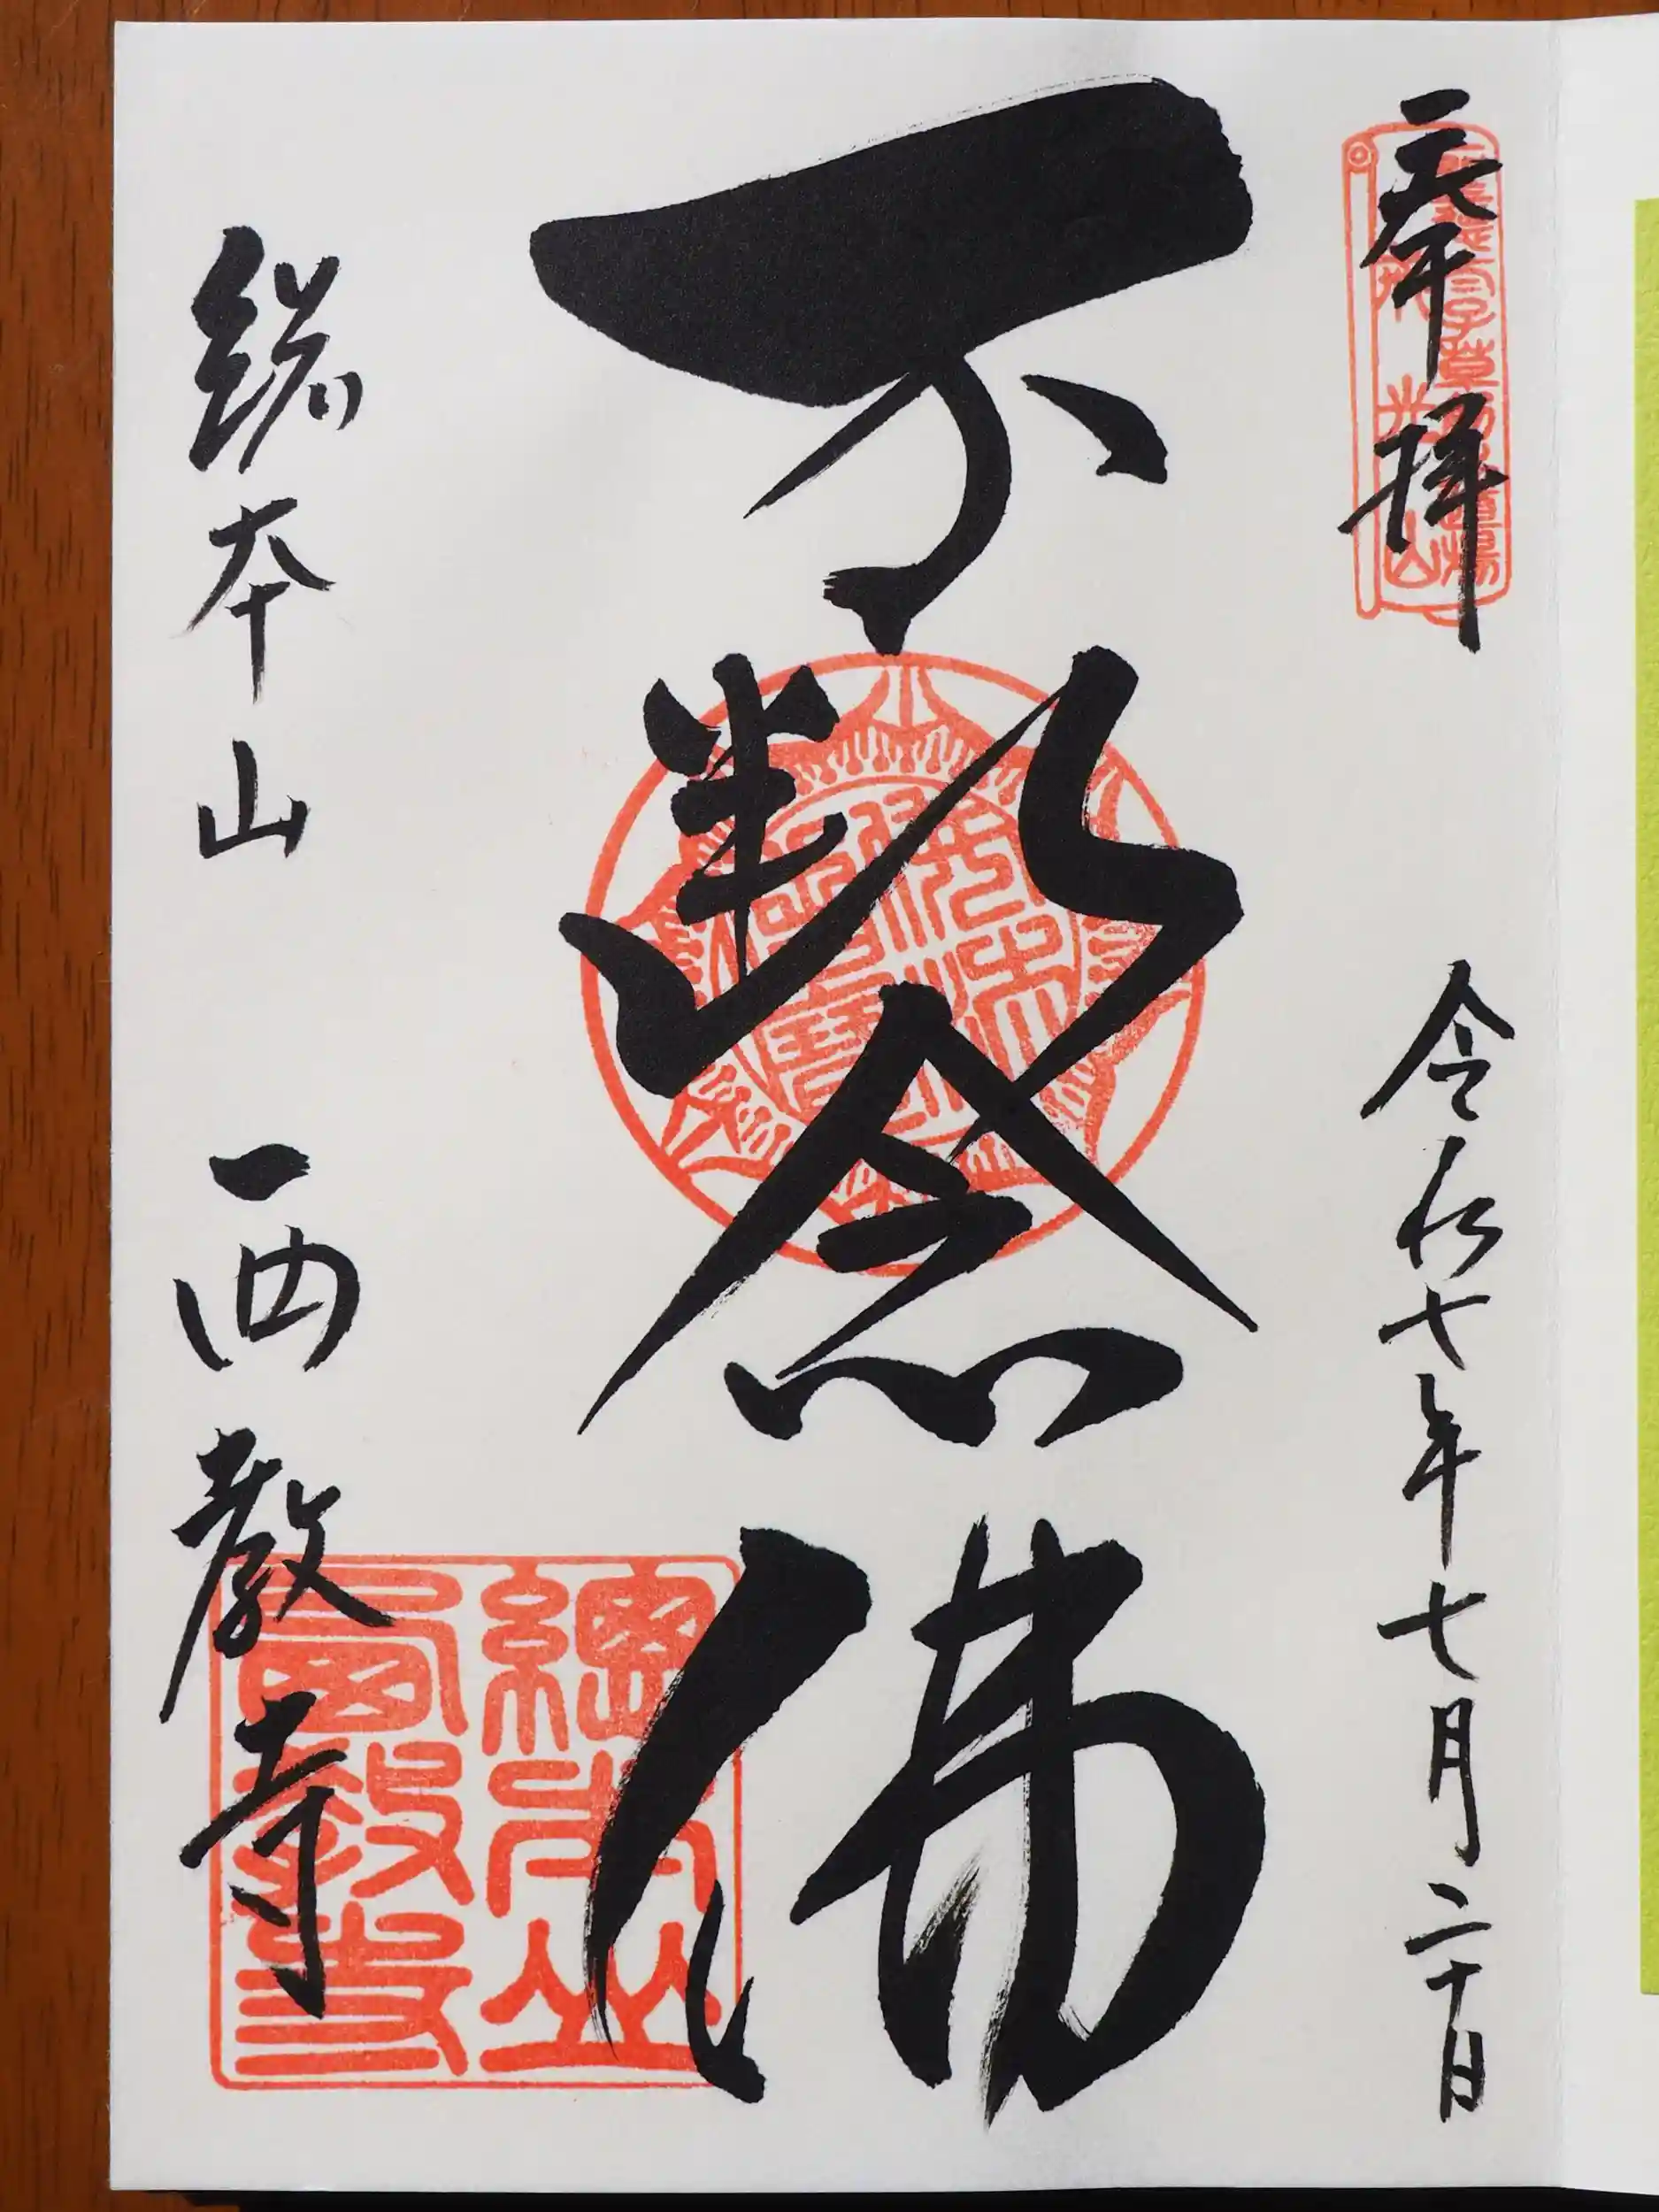 奉拝
令和七年七月二十日
不断念佛
総本山 西教寺
總本山西教寺